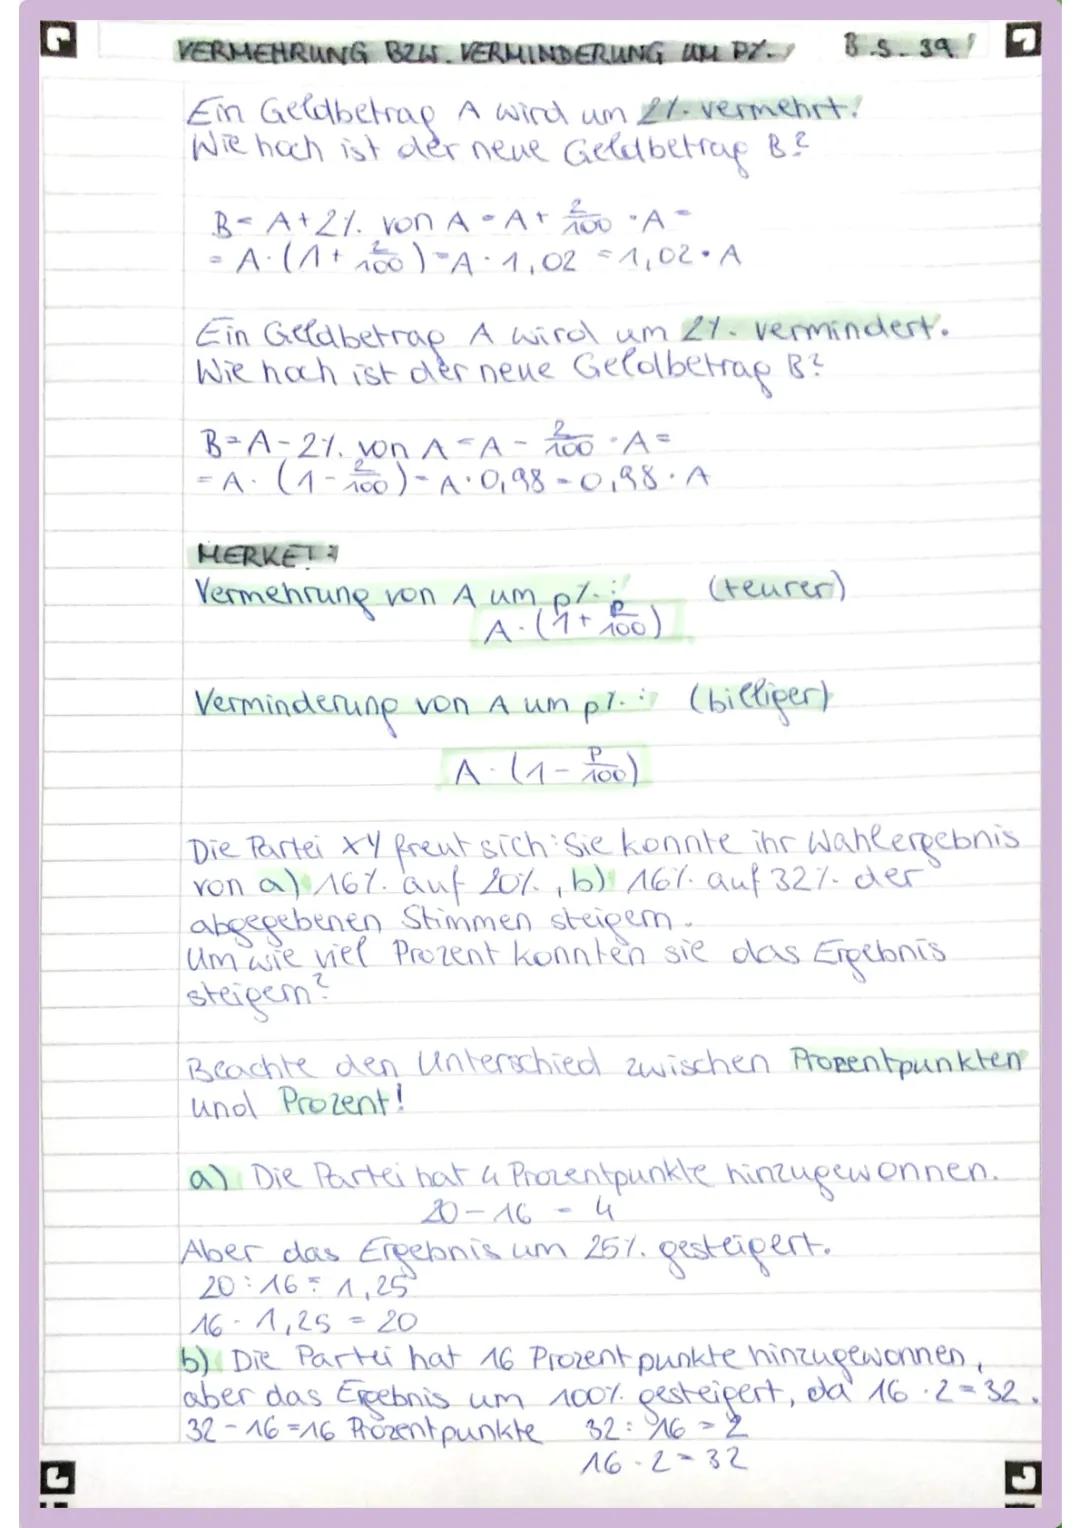 VERMEHRUNG BZW. VERMINDERUNG UM P%. B.S. 39!
Ein Geldbetrag A wird um 2% vermehrt!
Wie hoch ist der neue Geldbetrag B?
B = A + 2% von A = A + 2/100 · A =
= A · (1 + 2/100) = A · 1,02 = 1,02 · A
Ein Geldbetrag A wird um 2% vermindert.
Wie hoch ist der neue Geldbetrag B?
B = A - 2% von A = A - 2/100 · A =
= A · (1 - 2/100) = A · 0,98 = 0,98 · A
MERKET:
Vermehrung von A um p%: (teurer)
A · (1 + p/100)
Verminderung von A um p%: (billiger)
A · (1 - p/100)
Die Partei XY freut sich: Sie konnte ihr Wahlergebnis
von a) 16% auf 20%, b) 16% auf 32% der
abgegebenen Stimmen steigern.
Um wie viel Prozent konnten sie das Ergebnis
steigern?
Beachte den Unterschied zwischen Prozentpunkten
und Prozent!
a) Die Partei hat 4 Prozentpunkte hinzugewonnen.
20 - 16 = 4
Aber das Ergebnis um 25% gesteigert.
20 : 16 = 1,25
16 · 1,25 = 20
b) Die Partei hat 16 Prozentpunkte hinzugewonnen,
aber das Ergebnis um 100% gesteigert, da 16 · 2 = 32.
32 - 16 = 16 Prozentpunkte 32 : 16 = 2
16 · 2 = 32